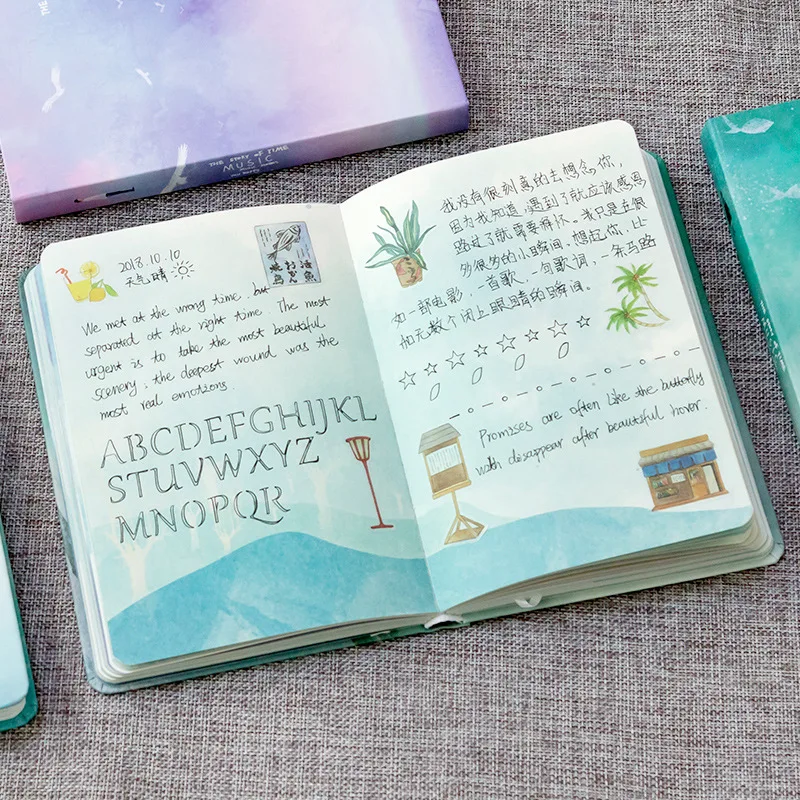 THE STORY OF TIME
MUSIC
2018.10.10
天气晴
We met at the wrong time, but
separated at the right time. The most
urgent is to take the most beautiful
scenery; the deepest wound was the
most real emotions.
ABCDEFGHIJKL
STUVWXYZ
MNOPQR
我没有很刻意的去想念你,
因为我知道,遇到了就应该感恩
路过了就需要释怀。我只是在很
多很多的小瞬间,想起你,比
如一部电影,一首歌,一句歌词,一条马路
和无数个闭上眼睛的瞬间。
Promises are often like the butterfly
with disappear after beautiful hover.